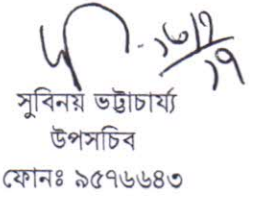 ১৬/৭/১৭
সুবিনয় ভট্টাচার্য্য
উপসচিব
ফোনঃ ৯৫৭৬৬৪৩